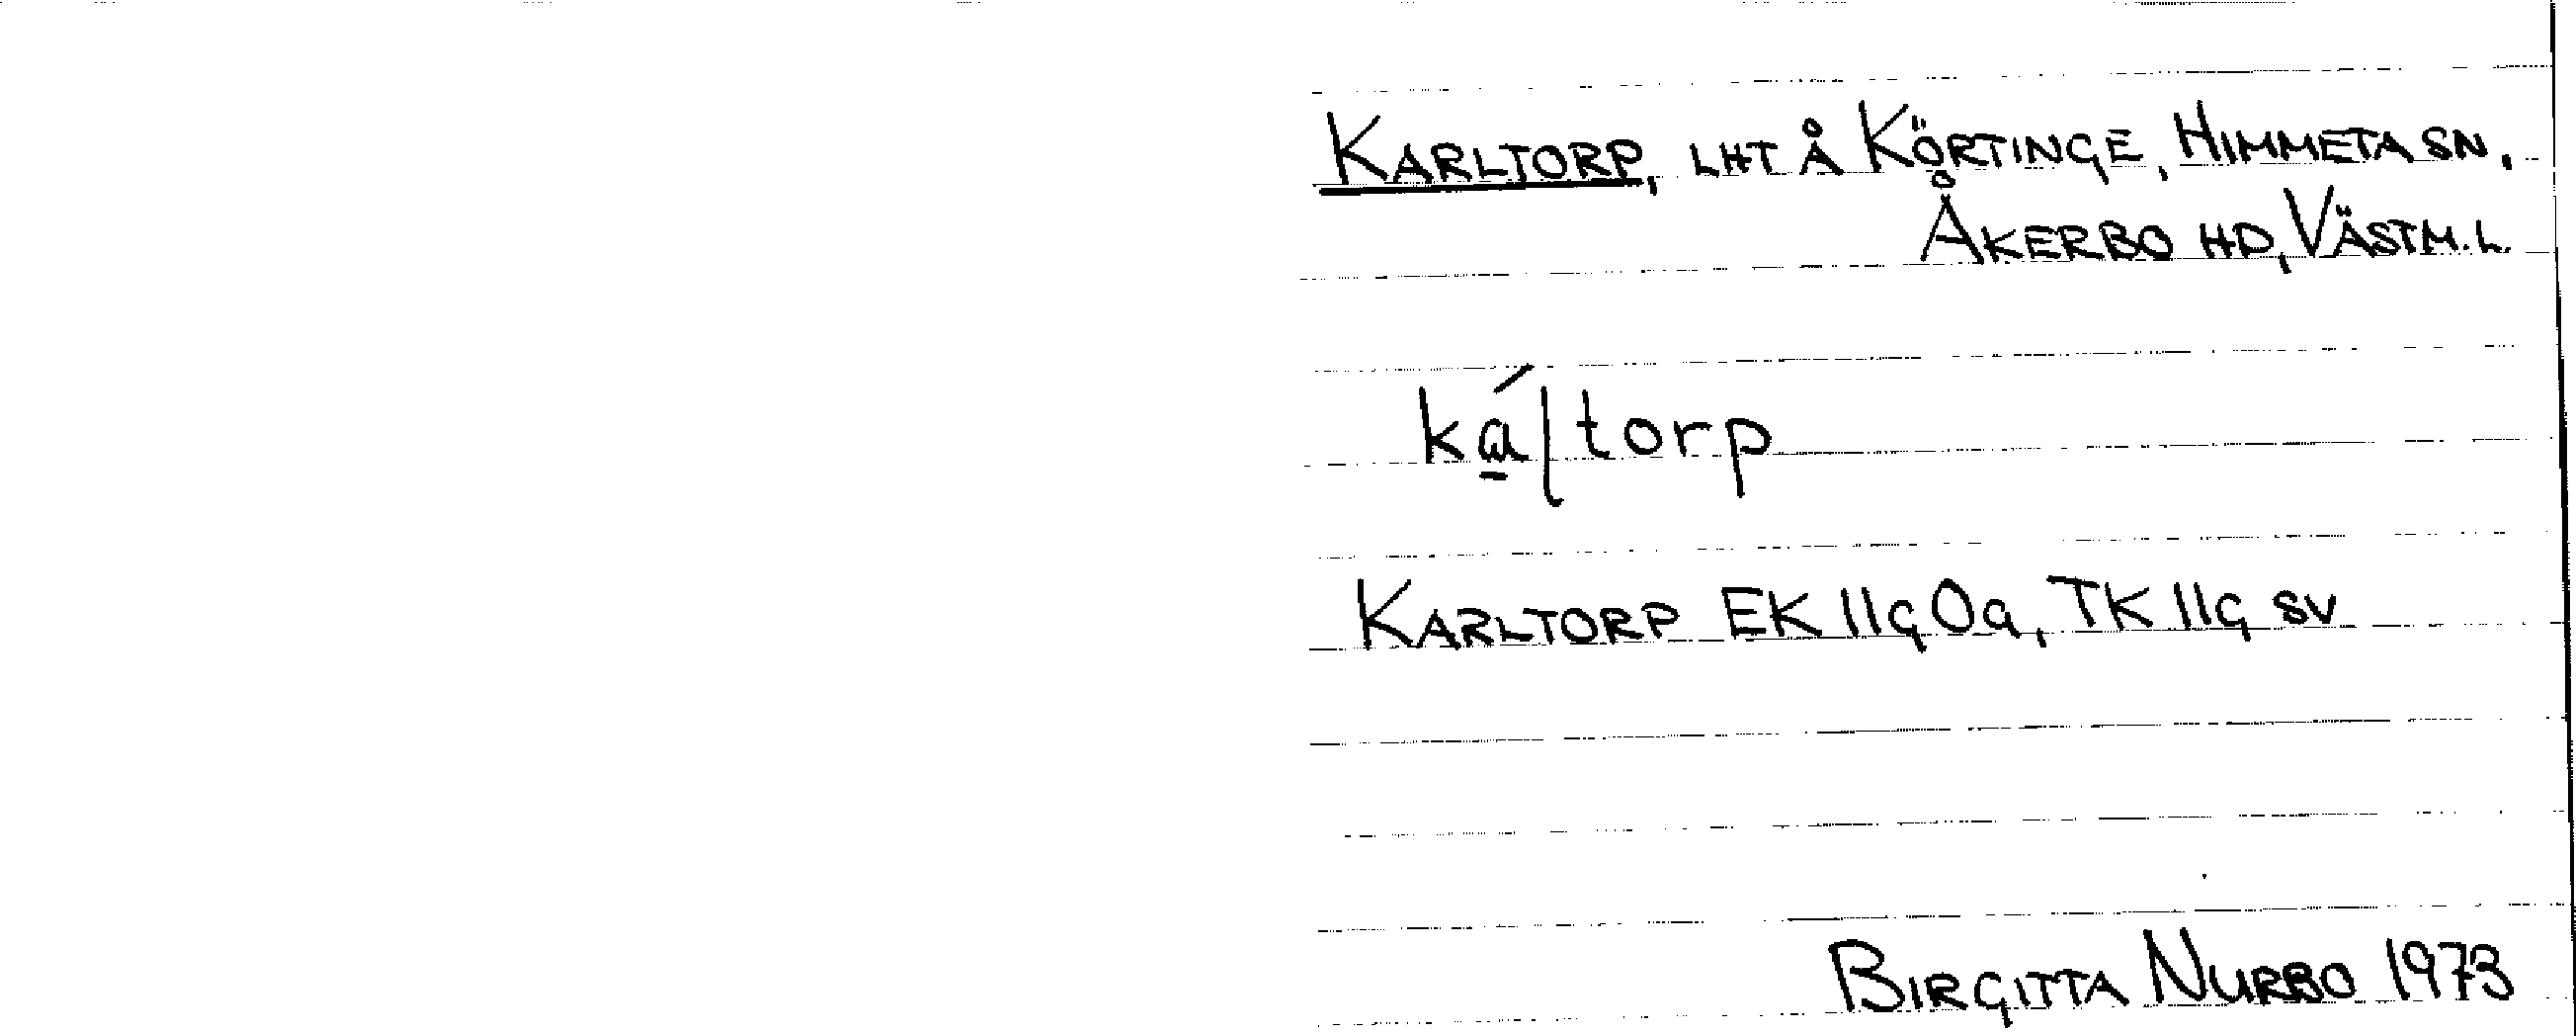 KARLTORP, LHT Å KÖRTINGE, HIMMETA SN,
ÅKERBO HD, VÄSTM. L.
ká̱ɭtorp
KARLTORP EK 11G 0a, TK 11G SV
BIRGITTA NURBO 1973